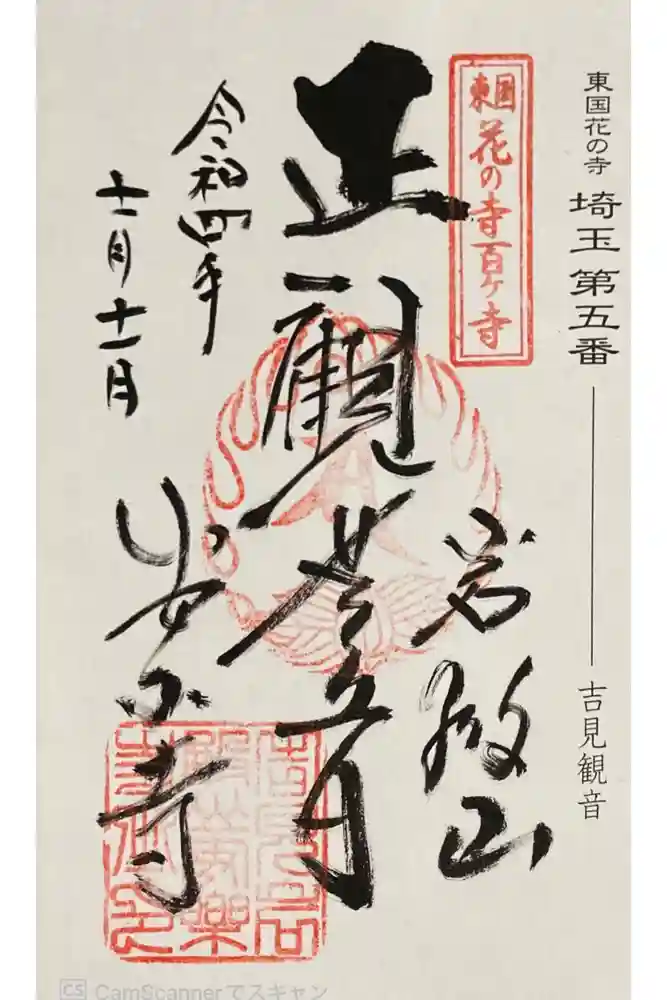 東国花の寺 埼玉第五番 ―― 吉見観音
東国
花の寺百ヶ寺
岩殿山
正觀世音
令和四年
十一月十一日
安楽寺
CS CamScannerでスキャン